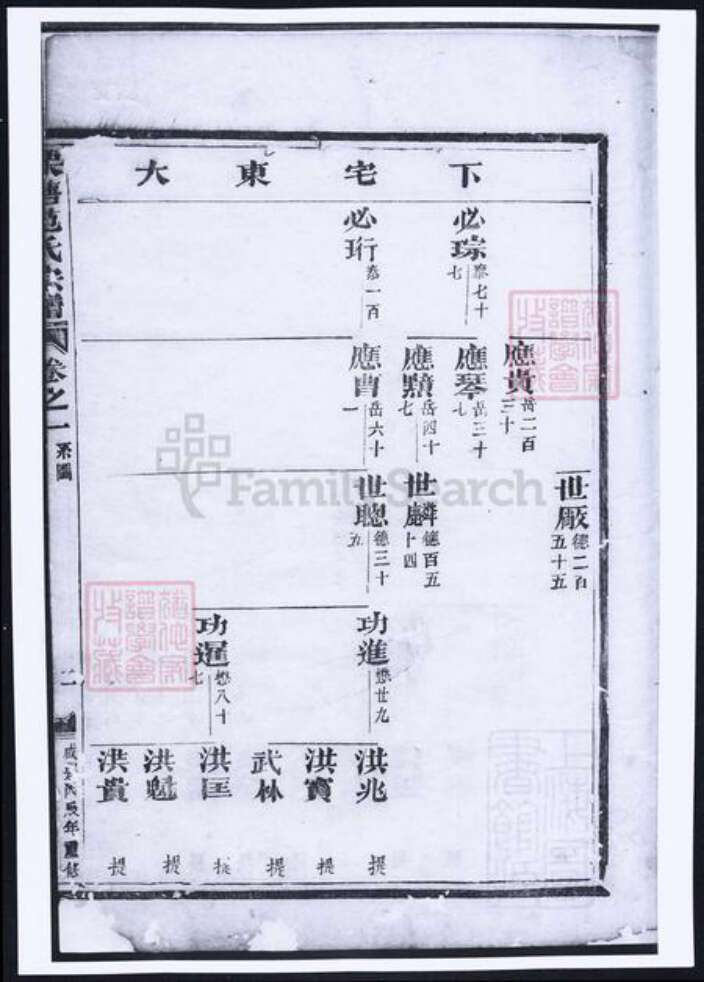 下宅東大
必琮 泰七十七
必珩 泰一百
應貴 岳二百三十
應琴 岳三十七
應䵻 岳四十七
應曹 岳六十一
世厰 德二百五十五
世麟 德百五十四
世聰 德三十五
功進 懋廿九
功暹 懋八十七
洪兆 提
洪寳 提
武林 提
洪匡 提
洪魁 提
洪貴 提
塘范氏宗譜 卷之一 系圖
二
年重修
FamilySearch